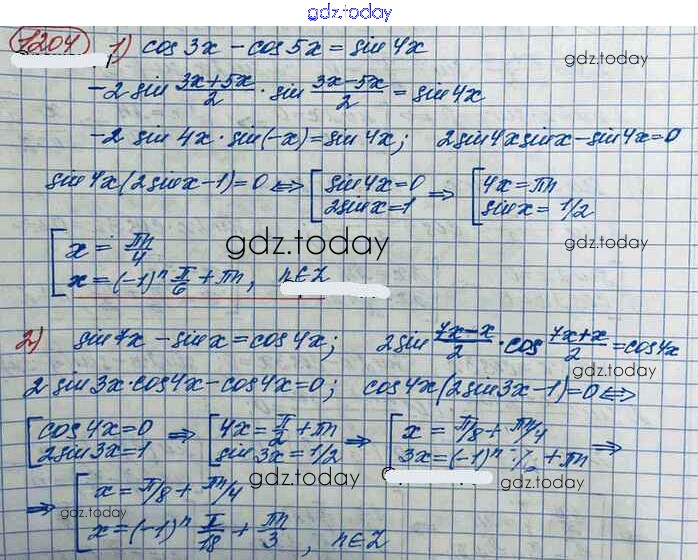 gdz.today
1204 1) cos 3x - cos 5x = sin 4x
gdz.today
-2 sin (3x+5x)/2 · sin (3x-5x)/2 = sin 4x
-2 sin 4x · sin(-x) = sin 4x; 2 sin 4x sin x - sin 4x = 0
sin 4x (2 sin x - 1) = 0 <=> [ sin 4x = 0 => [ 4x = πn
2 sin x = 1 sin x = 1/2
gdz.today
[ x = πn/4
gdz.today
x = (-1)ⁿ π/6 + πn, n ∈ Z
2) sin 7x - sin x = cos 4x; 2 sin (7x-x)/2 · cos (7x+x)/2 = cos 4x
2 sin 3x · cos 4x - cos 4x = 0; cos 4x (2 sin 3x - 1) = 0 <=>
gdz.today
[ cos 4x = 0 => [ 4x = π/2 + πn => [ x = π/8 + πn/4 =>
2 sin 3x = 1 sin 3x = 1/2 3x = (-1)ⁿ · π/6 + πn
gdz.today
=> [ x = π/8 + πn/4
gdz.today
x = (-1)ⁿ π/18 + πn/3, n ∈ Z
gdz.today